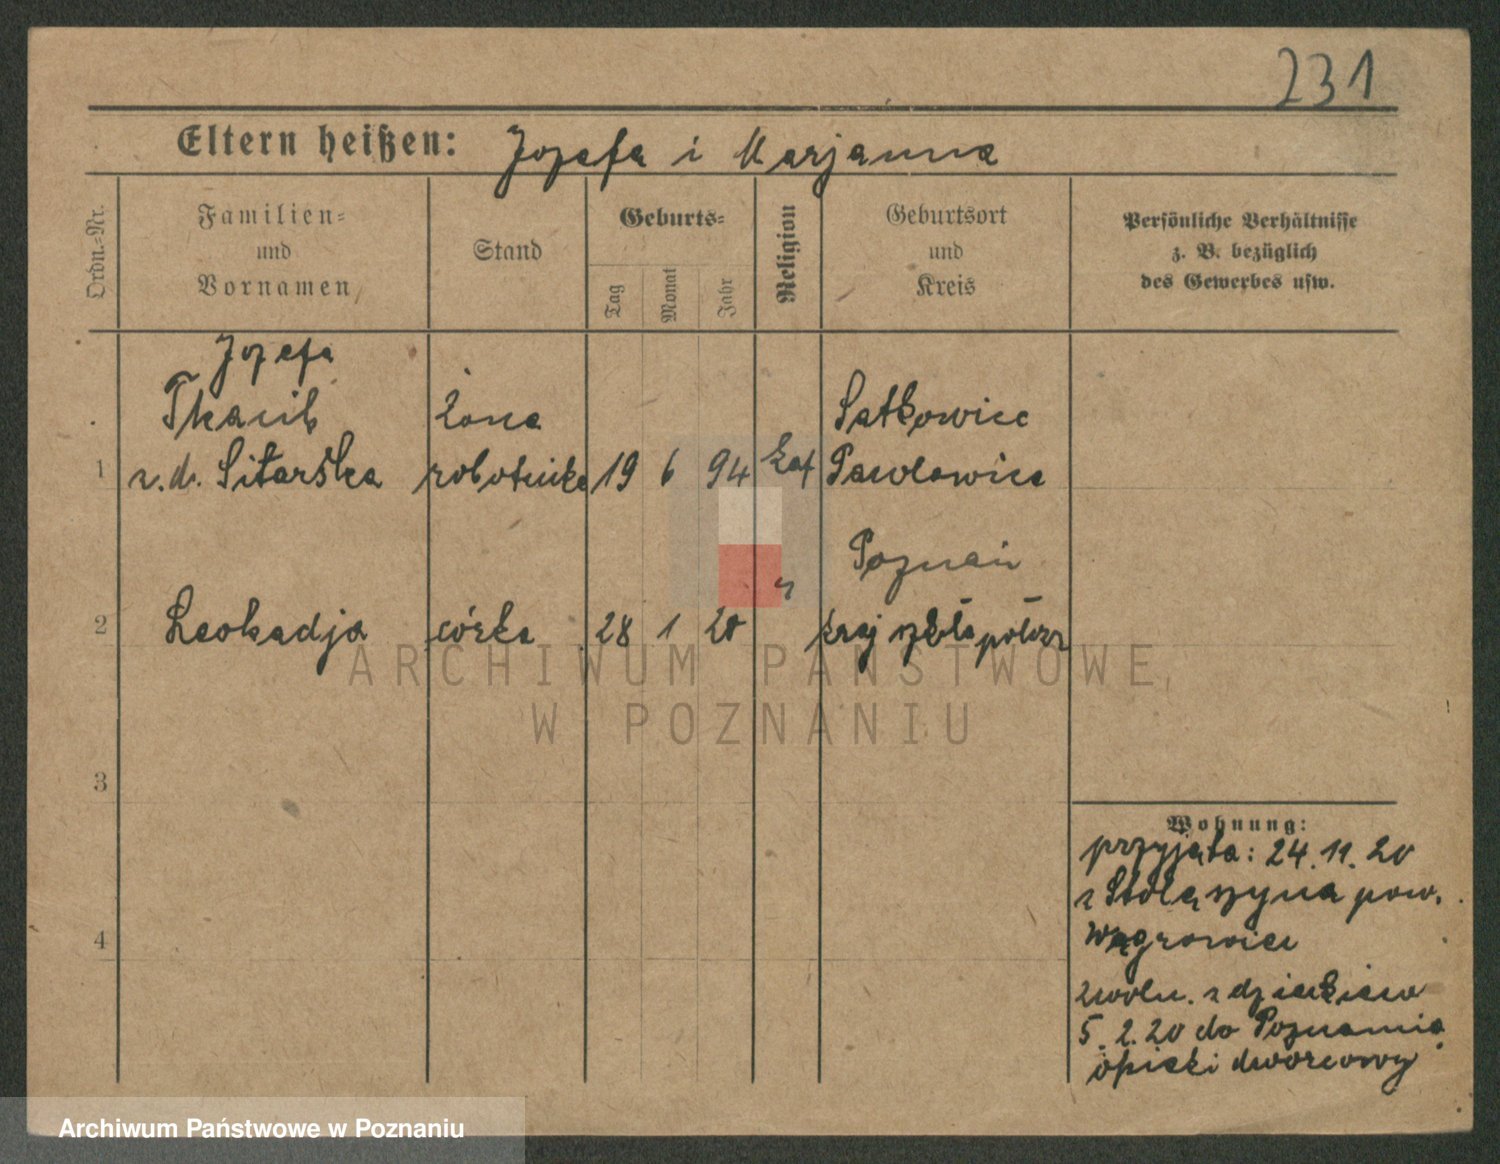 231
Eltern heißen: Jozefa i Marjanna
Ordn.-Nr.
Familien-
und
Vornamen
Stand
Geburts-
Tag
Monat
Jahr
Religion
Geburtsort
und
Kreis
Persönliche Verhältnisse
z. B. bezüglich
des Gewerbes usw.
Jozefa
żona
Satkowice
1
z. d. Sitarska
robotnika
19 6 94
kat
Pawłowice
Poznań
2
Leokadja
córka
28 1 20
"
kraj
3
4
Wohnung:
przyjęta: 24.11.20
z pow.
Wągrowiec
zwoln. z dzieckiem
5.2.20 do Poznania
opieki dworcowej
ARCHIWUM PAŃSTWOWE
W POZNANIU
Archiwum Państwowe w Poznaniu